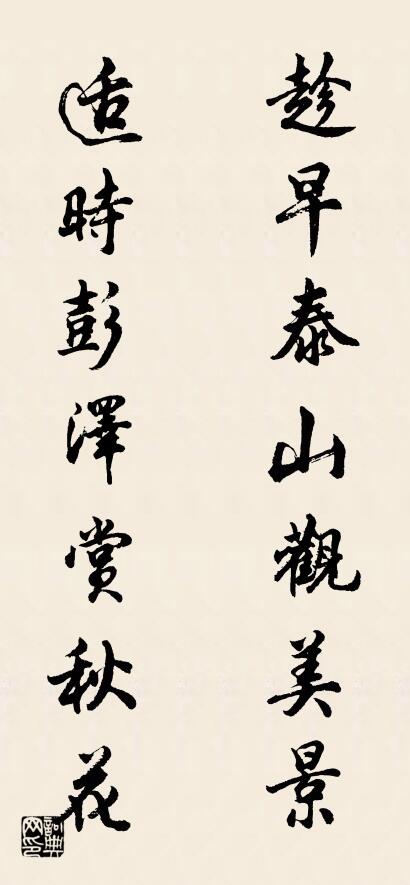 趁早泰山觀美景
适時彭澤賞秋花